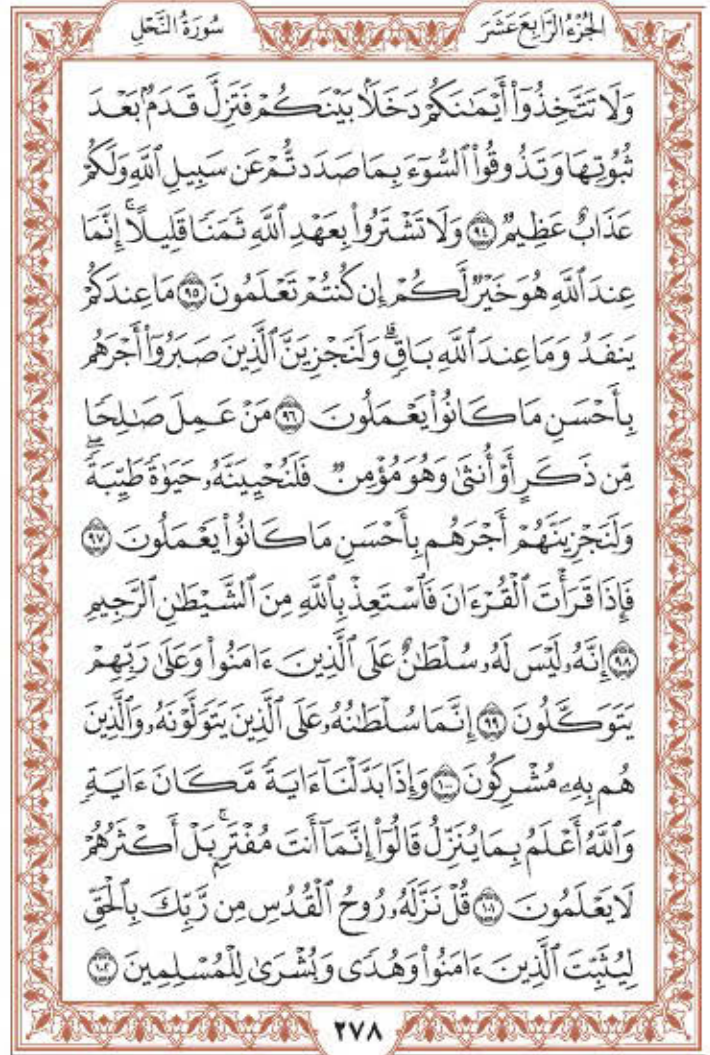 الجُزْءُ الرَّابِعَ عَشَرَ
سُورَةُ النَّحْلِ
وَلَا تَتَّخِذُوٓاْ أَيْمَٰنَكُمْ دَخَلَۢا بَيْنَكُمْ فَتَزِلَّ قَدَمُۢ بَعْدَ
ثُبُوتِهَا وَتَذُوقُواْ ٱلسُّوٓءَ بِمَا صَدَدتُّمْ عَن سَبِيلِ ٱللَّهِ وَلَكُمْ
عَذَابٌ عَظِيمٌ ﴿٩٤﴾ وَلَا تَشْتَرُواْ بِعَهْدِ ٱللَّهِ ثَمَنًا قَلِيلًاۚ إِنَّمَا
عِندَ ٱللَّهِ هُوَ خَيْرٌ لَّكُمْ إِن كُنتُمْ تَعْلَمُونَ ﴿٩٥﴾ مَا عِندَكُمْ
يَنفَدُ وَمَا عِندَ ٱللَّهِ بَاقٍۗ وَلَنَجْزِيَنَّ ٱلَّذِينَ صَبَرُوٓاْ أَجْرَهُم
بِأَحْسَنِ مَا كَانُواْ يَعْمَلُونَ ﴿٩٦﴾ مَنْ عَمِلَ صَٰلِحًا
مِّن ذَكَرٍ أَوْ أُنثَىٰ وَهُوَ مُؤْمِنٌ فَلَنُحْيِيَنَّهُۥ حَيَوٰةً طَيِّبَةًۖ
وَلَنَجْزِيَنَّهُمْ أَجْرَهُم بِأَحْسَنِ مَا كَانُواْ يَعْمَلُونَ ﴿٩٧﴾
فَإِذَا قَرَأْتَ ٱلْقُرْءَانَ فَٱسْتَعِذْ بِٱللَّهِ مِنَ ٱلشَّيْطَٰنِ ٱلرَّجِيمِ
﴿٩٨﴾ إِنَّهُۥ لَيْسَ لَهُۥ سُلْطَٰنٌ عَلَى ٱلَّذِينَ ءَامَنُواْ وَعَلَىٰ رَبِّهِمْ
يَتَوَكَّلُونَ ﴿٩٩﴾ إِنَّمَا سُلْطَٰنُهُۥ عَلَى ٱلَّذِينَ يَتَوَلَّوْنَهُۥ وَٱلَّذِينَ
هُم بِهِۦ مُشْرِكُونَ ﴿١٠٠﴾ وَإِذَا بَدَّلْنَآ ءَايَةً مَّكَانَ ءَايَةٍ
وَٱللَّهُ أَعْلَمُ بِمَا يُنَزِّلُ قَالُوٓاْ إِنَّمَآ أَنتَ مُفْتَرِۭۚ بَلْ أَكْثَرُهُمْ
لَا يَعْلَمُونَ ﴿١٠١﴾ قُلْ نَزَّلَهُۥ رُوحُ ٱلْقُدُسِ مِن رَّبِّكَ بِٱلْحَقِّ
لِيُثَبِّتَ ٱلَّذِينَ ءَامَنُواْ وَهُدًى وَبُشْرَىٰ لِلْمُسْلِمِينَ ﴿١٠٢﴾
٢٧٨